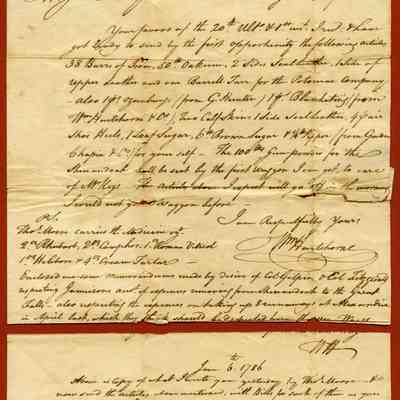 Your favors of the 20th Ulto. & 1st inst. I recd. & have
got ready to send by the first opportunity the following articles
38 Barrs of Iron, 50lb Oakum, 2 Sides Sealleather, 1 Side of
upper Leather and one Barrell Tarr for the Potomac Company
also 1 ps Oznabrugs (from G. Hunter) 1 ps Blanketing (from
Wm Hartshorne & Co), two Calf Skins 1 Side Sealleather, 4 pair
Shoe Heels, 1 Loaf Sugar, 6lb Brown Sugar & Pepper (from
Chapin & Co) for your self - The 100lb Gunpowder for the
Shenandoah shall be sent by the first waggon I can get, to care
of Mr Keys The Articles above I expect will go off in the morning
I could not get a Waggon before -
I am Respectfully Yours
Wm Hartshorne
P.S.
Thos. Moore carries the Medicine vizt
2 oz Rhubarb, 2 oz Camphor, 1 Roman Vitriol
1 oz and 4 oz Cream Tartar -
enclosed are some Memorandums made by desire of Col Gilpin & Col Fitzgerald
respecting Jamiesons acct. of expences removing from Shenandoah to the Great
Falls - also respecting the expences on taking up runaways at Alexandria
in April last, which they think should be
WH
Jan 6th, 1786
Above is copy of what I wrote you yesterday by Thos. Moore -
now send the articles above mentioned, with Bills for such of them as your